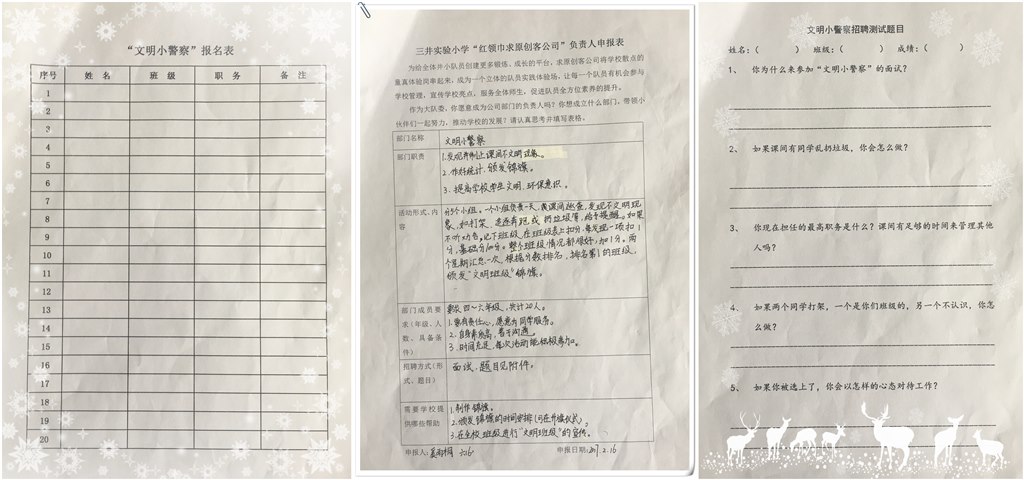 “文明小警察”报名表
序号 姓 名 班 级 职 务 备 注
1
2
3
4
5
6
7
8
9
10
11
12
13
14
15
16
17
18
19
20
三井实验小学“红领巾求原创客公司”负责人申报表
为给全体井小队员创建更多锻炼、成长的平台，求原创客公司将学校散点的
童真体验岗串起来，成为一个立体的队员实践体验场，让每一个队员有机会参与
学校管理、宣传学校亮点，服务全体师生，促进队员全方位素养的提升。
作为大队委，你愿意成为公司部门的负责人吗？你想成立什么部门，带领小
伙伴们一起努力，推动学校的发展？请认真思考并填写表格。
部门名称 文明小警察
部门职责 1.发现并制止课间不文明现象。
2.作好统计，颁发锦旗。
3.提高学校学生文明、环保意识。
活动形式、内
容
分5个小组。一个小组负责一天，
发现不文明现
象，如打架、追逐奔跑或扔垃圾等，给予提醒。如果
不听劝告，记下班级，在班级表上扣分，每发现一次扣1
分，基础分100分。整个班级情况都很好，加1分。两
个星期汇总一次，根据分数排名，排名第1的班级，
颁发“文明班级”锦旗。
部门成员要
求（年级、人
数、具备条
件）
四～六年级，共计20人。
1.要有责任心，愿意为同学服务。
2.自身素质高，善于沟通。
3.时间充足，每次活动能积极参加。
招聘方式（形
式、题目）
面试，题目见附件。
需要学校提
供哪些帮助
1.制作锦旗。
2.颁发锦旗的时间安排（可在升旗仪式）。
3.在全校班级进行“文明班级”的宣传。
申报人： 六16 申报日期：2017.2.16
文明小警察招聘测试题目
姓名：（ ） 班级：（ ） 成绩：（ ）
1、 你为什么来参加“文明小警察”的面试？
2、 如果课间有同学乱扔垃圾，你会怎么做？
3、 你现在担任的最高职务是什么？课间有足够的时间来管理其他
人吗？
4、 如果两个同学打架，一个是你们班级的，另一个不认识，你怎
么做？
5、 如果你被选上了，你会以怎样的心态对待工作？